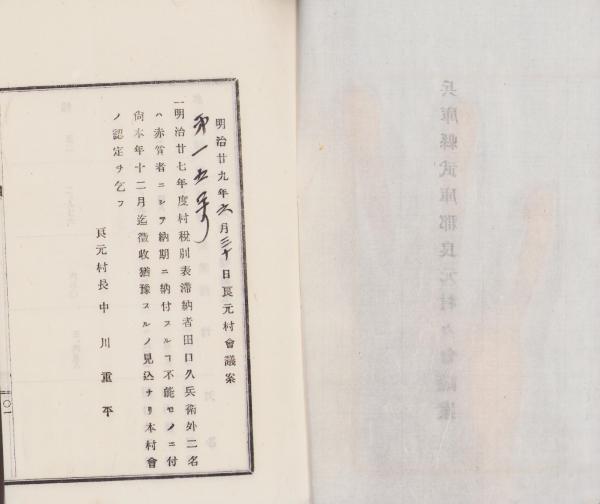 兵庫縣武庫郡良元村々會議案
明治廿九年六月三十日良元村會議案
第一五号
一明治廿七年度村税別表滞納者田口久兵衛外二名
ハ赤貧者ニシテ納期ニ納付スルヿ不能モノニ付
尙本年十二月迄徵收猶豫スルノ見込ナリ本村會
ノ認定ヲ乞フ
良元村長 中川重平
一〇一